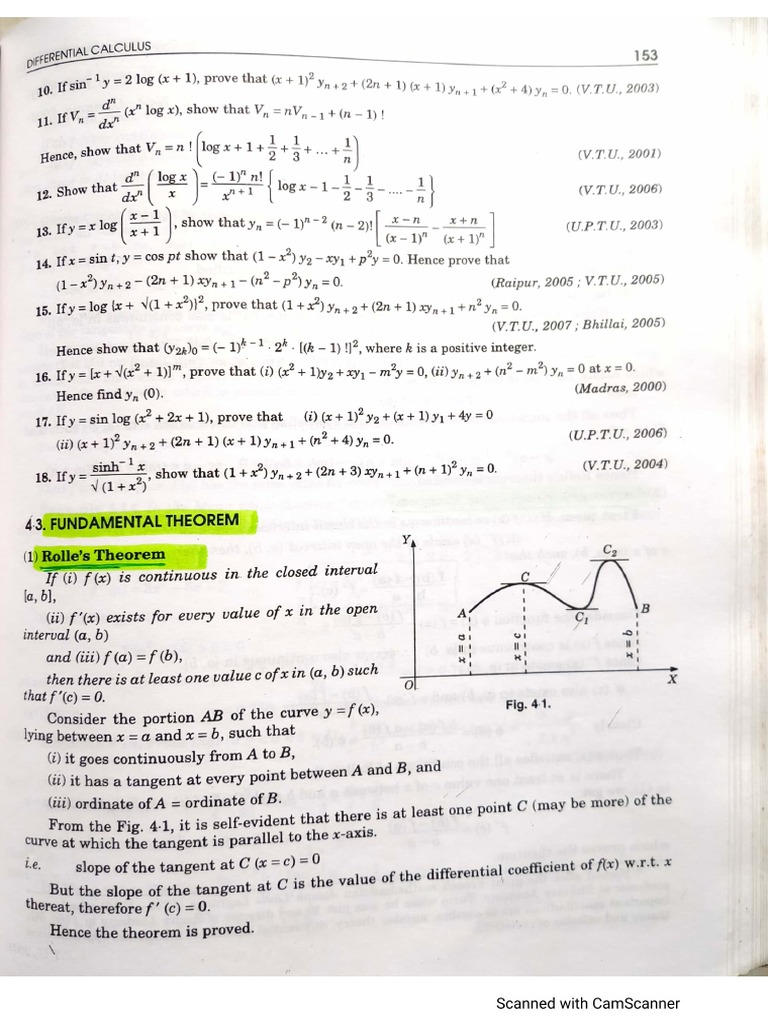 DIFFERENTIAL CALCULUS 153
10. If sin⁻¹ y = 2 log (x + 1), prove that (x + 1)² yₙ₊₂ + (2n + 1) (x + 1) yₙ₊₁ + (x² + 4) yₙ = 0. (V.T.U., 2003)
11. If Vₙ = dⁿ/dxⁿ (xⁿ log x), show that Vₙ = nVₙ₋₁ + (n – 1) !
Hence, show that Vₙ = n ! (log x + 1 + 1/2 + 1/3 + ... + 1/n) (V.T.U., 2001)
12. Show that dⁿ/dxⁿ (log x / x) = (– 1)ⁿ n! / xⁿ⁺¹ {log x – 1 – 1/2 – 1/3 – .... – 1/n} (V.T.U., 2006)
13. If y = x log ((x – 1)/(x + 1)), show that yₙ = (– 1)ⁿ⁻² (n – 2)! [(x – n)/(x – 1)ⁿ – (x + n)/(x + 1)ⁿ] (U.P.T.U., 2003)
14. If x = sin t, y = cos pt show that (1 – x²) y₂ – xy₁ + p²y = 0. Hence prove that
(1 – x²) yₙ₊₂ – (2n + 1) xyₙ₊₁ – (n² – p²) yₙ = 0. (Raipur, 2005 ; V.T.U., 2005)
15. If y = log {x + √(1 + x²)}², prove that (1 + x²) yₙ₊₂ + (2n + 1) xyₙ₊₁ + n² yₙ = 0.
(V.T.U., 2007 ; Bhillai, 2005)
Hence show that (y₂ₖ)₀ = (– 1)ᵏ⁻¹ · 2ᵏ · [(k – 1) !]², where k is a positive integer.
16. If y = [x + √(x² + 1)]ᵐ, prove that (i) (x² + 1)y₂ + xy₁ – m²y = 0, (ii) yₙ₊₂ + (n² – m²) yₙ = 0 at x = 0.
Hence find yₙ (0). (Madras, 2000)
17. If y = sin log (x² + 2x + 1), prove that (i) (x + 1)² y₂ + (x + 1) y₁ + 4y = 0
(ii) (x + 1)² yₙ₊₂ + (2n + 1) (x + 1) yₙ₊₁ + (n² + 4) yₙ = 0. (U.P.T.U., 2006)
18. If y = sinh⁻¹ x / √(1 + x²), show that (1 + x²) yₙ₊₂ + (2n + 3) xyₙ₊₁ + (n + 1)² yₙ = 0. (V.T.U., 2004)
4·3. FUNDAMENTAL THEOREM
(1) Rolle's Theorem
If (i) f (x) is continuous in the closed interval
[a, b],
(ii) f′(x) exists for every value of x in the open
interval (a, b)
and (iii) f (a) = f (b),
then there is at least one value c of x in (a, b) such
that f′(c) = 0.
Consider the portion AB of the curve y = f (x),
lying between x = a and x = b, such that
(i) it goes continuously from A to B,
(ii) it has a tangent at every point between A and B, and
(iii) ordinate of A = ordinate of B.
Y
A
C
C₁
C₂
B
x = a
x = c
x = b
O
X
Fig. 4·1.
From the Fig. 4·1, it is self-evident that there is at least one point C (may be more) of the
curve at which the tangent is parallel to the x-axis.
i.e. slope of the tangent at C (x = c) = 0
But the slope of the tangent at C is the value of the differential coefficient of f(x) w.r.t. x
thereat, therefore f′ (c) = 0.
Hence the theorem is proved.
Scanned with CamScanner